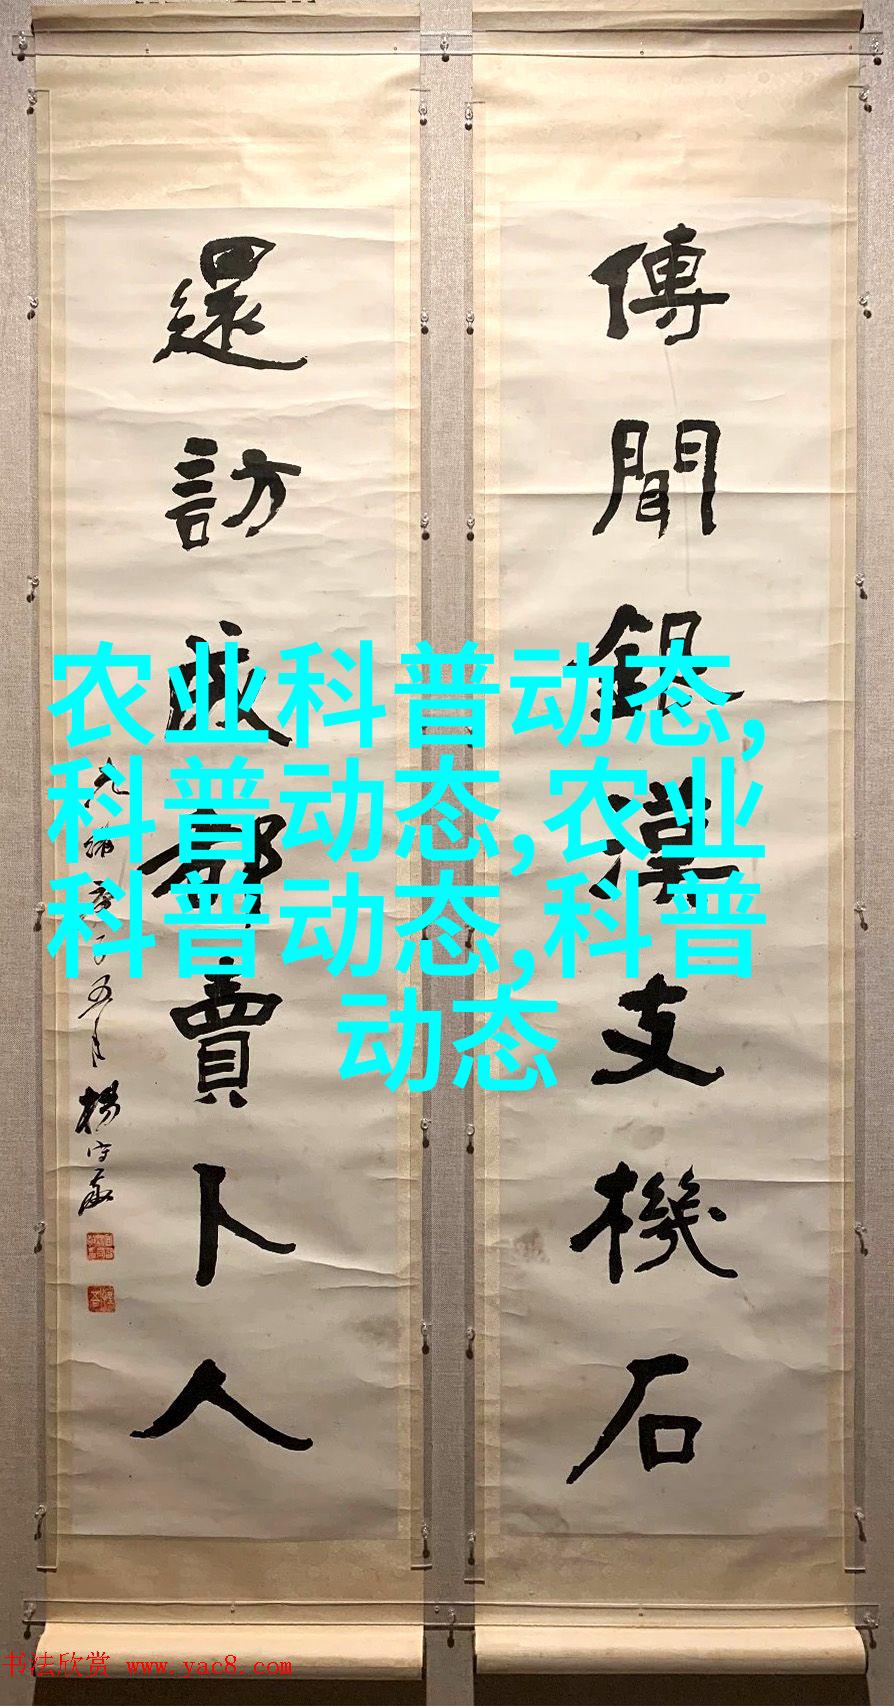 傳聞銀漢支機石
還訪成都賣卜人
光緒庚子五月楊守敬
农业科普动态,
科普动态,农业
科普动态,科普
动态
书法欣赏 www.yac8.com